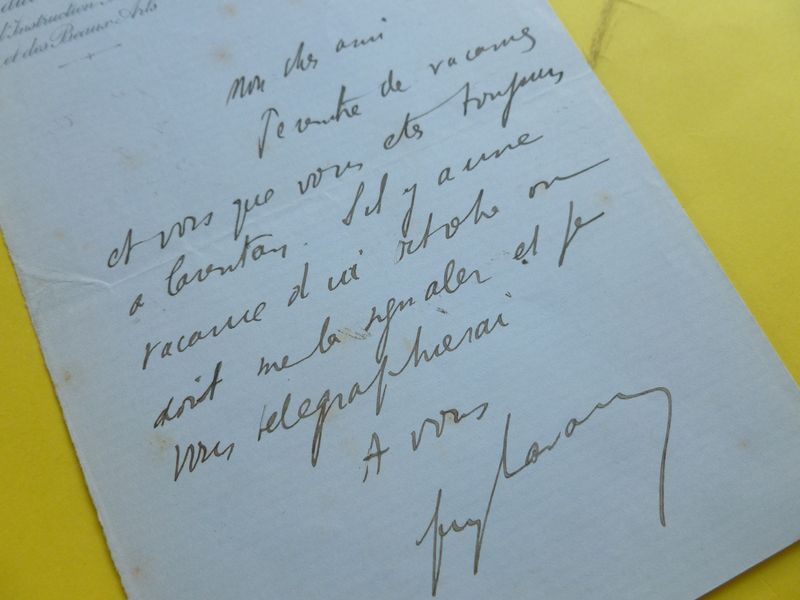 l'Instruction
et des Beaux-Arts
Mon cher ami
Je rentre de vacances
et vois que vous etes toujours
a Carentan. S'il y a une
vacance d'ici octobre on
doit me la signaler et je
vous telegraphierai
A vous